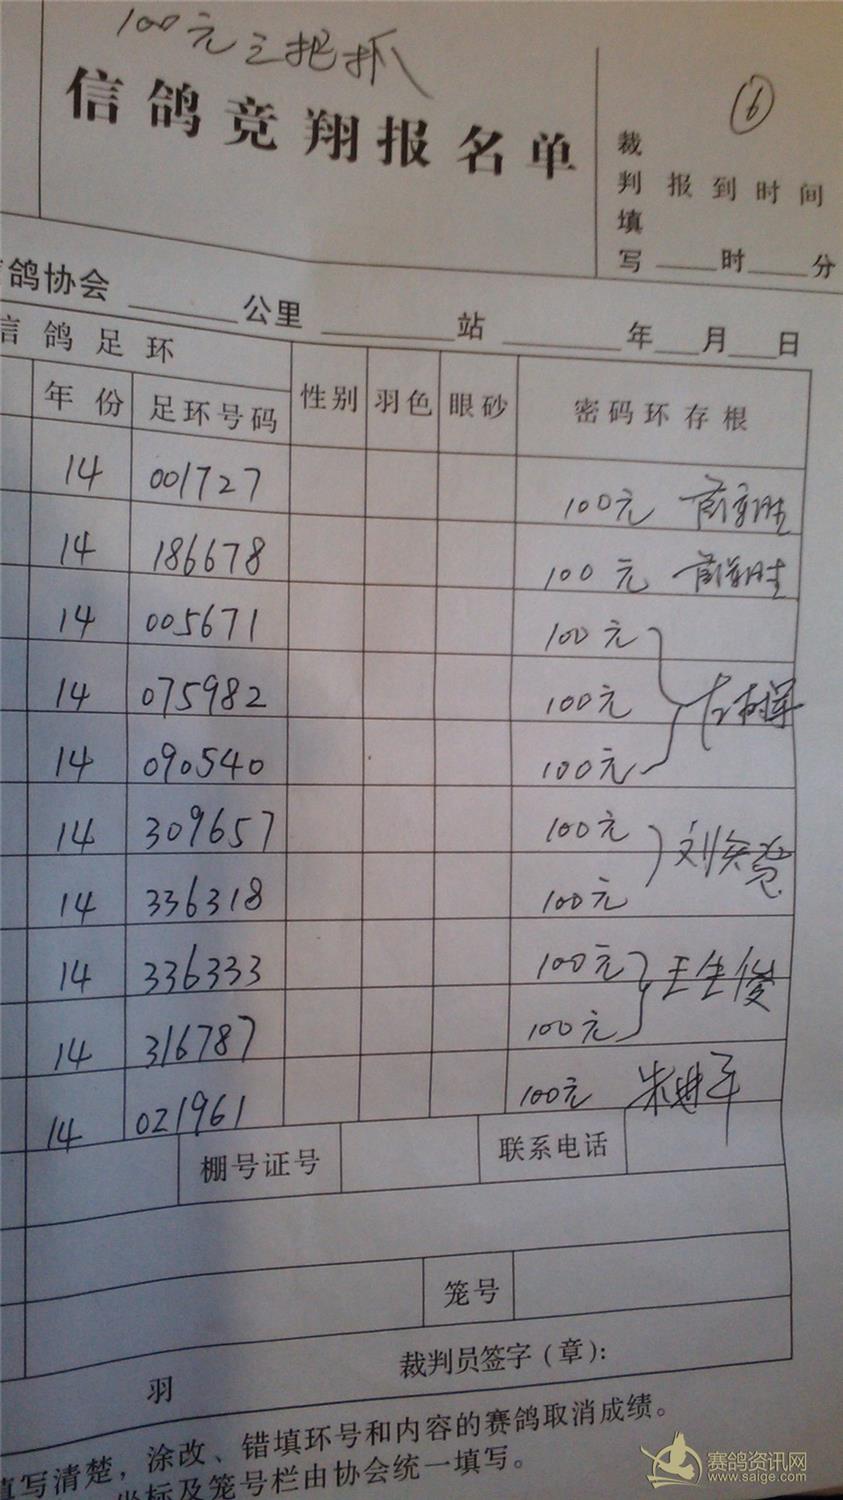 100元三把抓
⑥
信鸽竞翔报名单
裁判填写
报到时间
___时___分
鸽协会 ______公里 ______站 ______年___月___日
信鸽足环
年份 足环号码 性别 羽色 眼砂 密码环存根
14 001727 100元
14 186678 100元
14 005671 100元
14 075982 100元
14 090540 100元
14 309657 100元 刘
14 336318 100元
14 336333 100元 王生俊
14 316787 100元
14 021961 100元 朱进军
棚号证号 联系电话
笼号
羽 裁判员签字(章):
真写清楚,涂改、错填环号和内容的赛鸽取消成绩。
坐标及笼号栏由协会统一填写。
赛鸽资讯网
www.saige.com